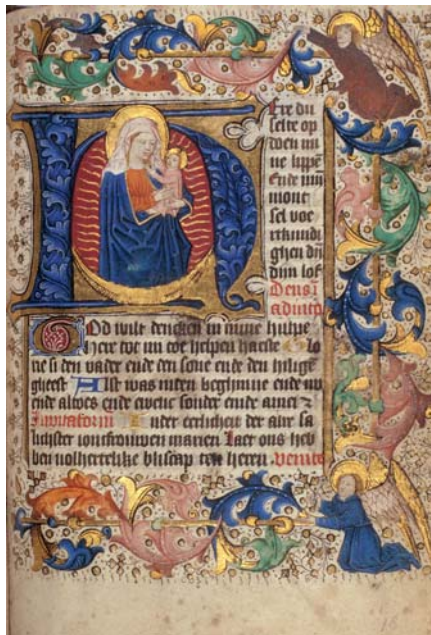 Here du
selte op
doen mi
ne lippē
Ende mijn
mont
sel voe
rtkundi
ghen
dijn lof
Deus ī
adiuto
God wilt dencken in mine hulpe
Here tot mi toe helpen haeste Glo
rie si den vader ende den sone ende den hilige
gheest Alst was inden beghinne ende nu
ende altoes ende ewelic sonder ende amen
eerlicheit der alre sa
lichster ioncfrouwen marien Laet ons heb
ben volhertelike bliscap ten heren Venite